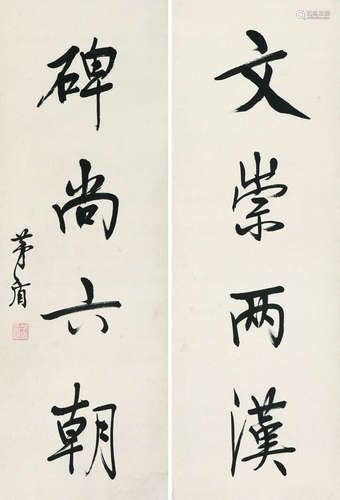 文崇两漢
碑尚六朝
茅盾